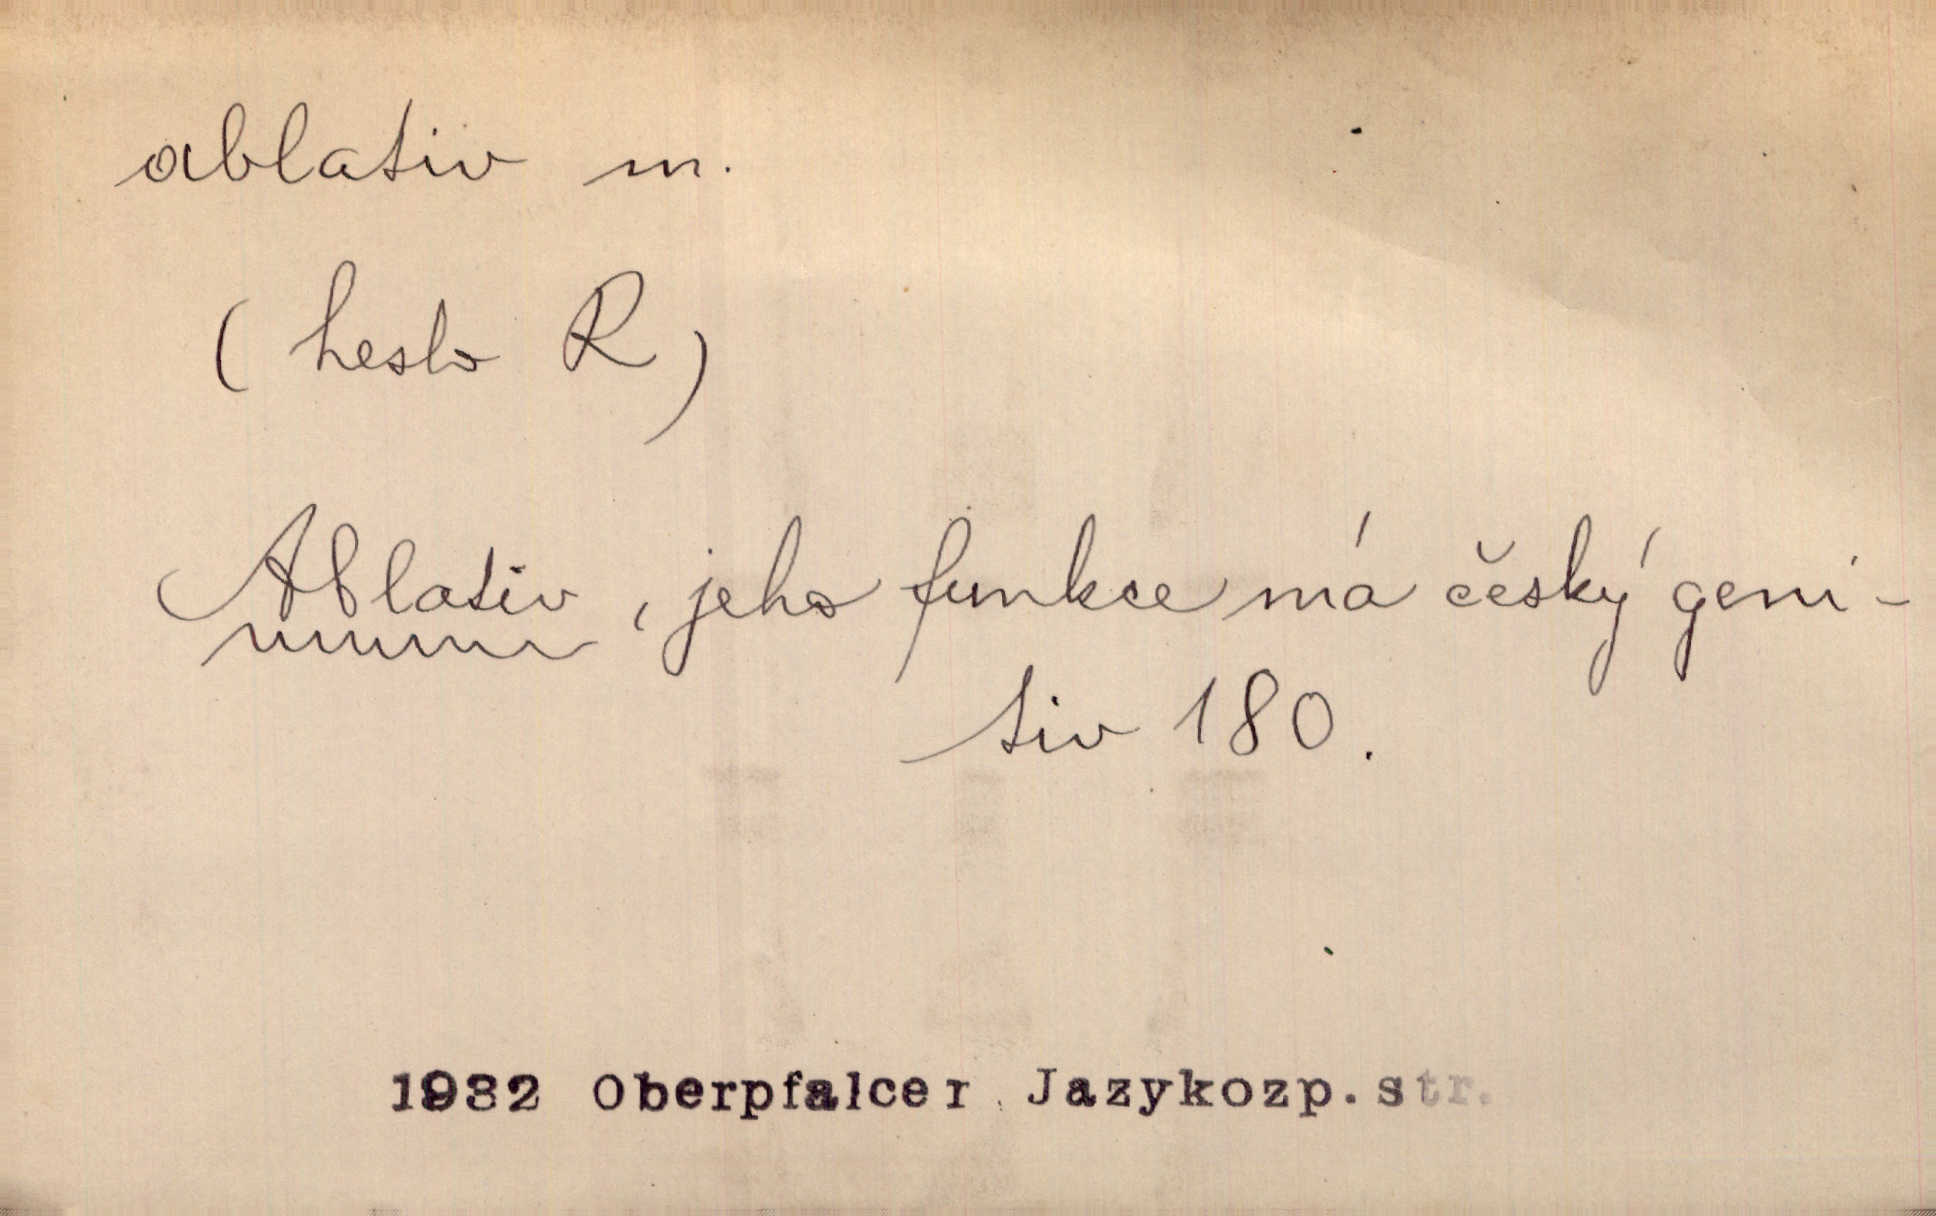 ablativ m.
( heslo R )
Ablativ, jeho funkce má český geni-
tiv 180.
1932 Oberpfalcer Jazykozp. str.